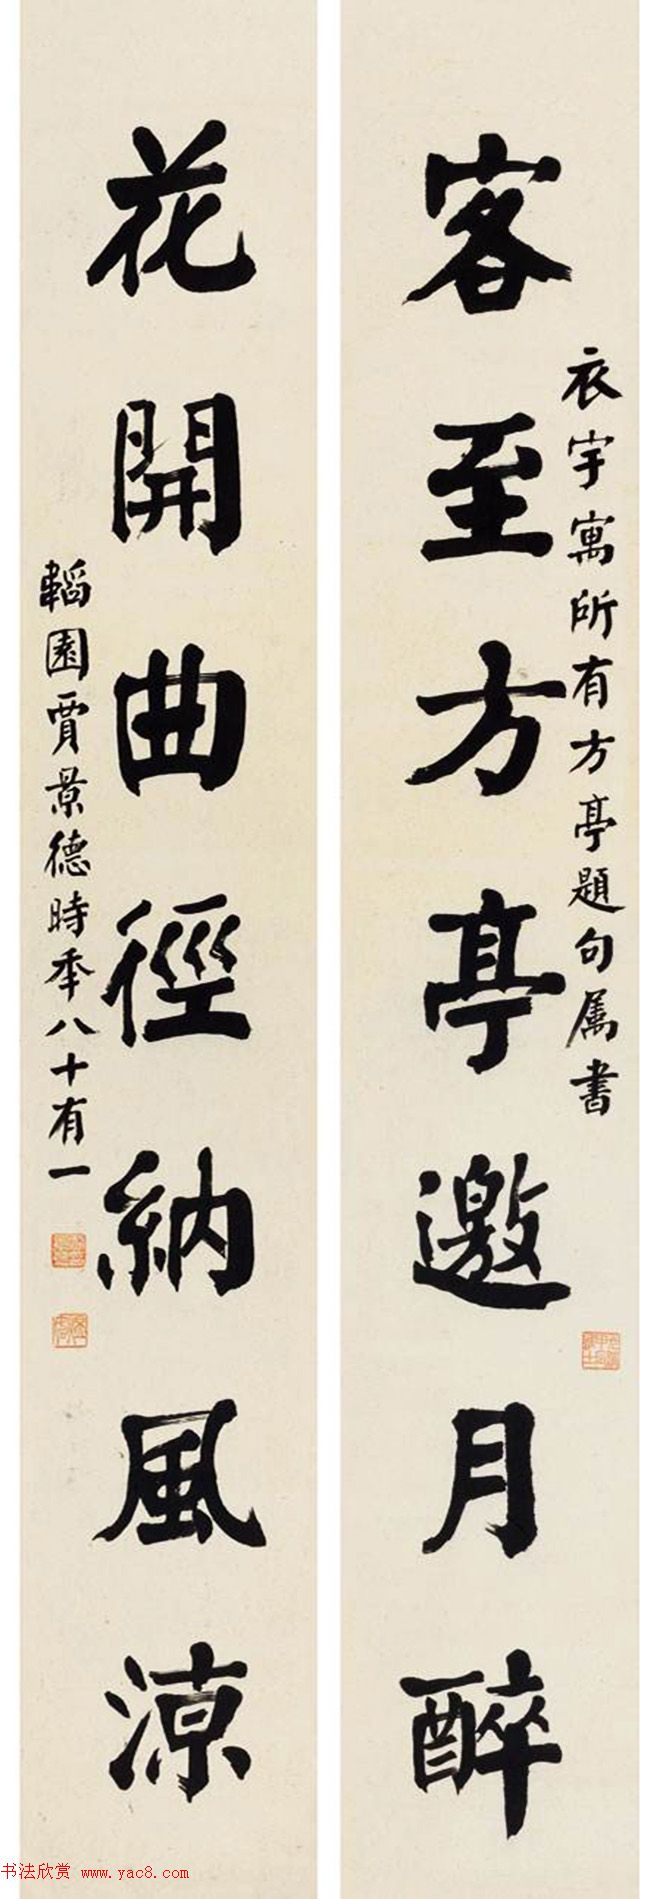 客至方亭邀月醉
衣宇寓所有方亭題句屬書
花開曲徑納風涼
韜園賈景德時年八十有一
书法欣赏 www.yac8.com